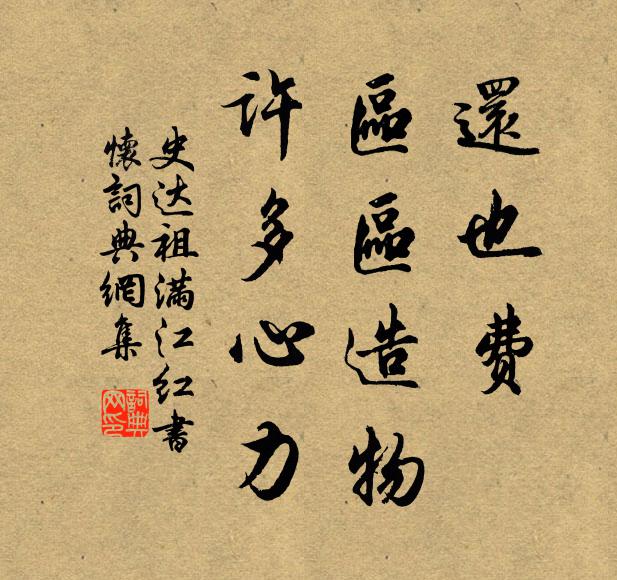 還也费
區區造物
许多心力
史达祖满江红書
懷詞典網集
詞典
网印